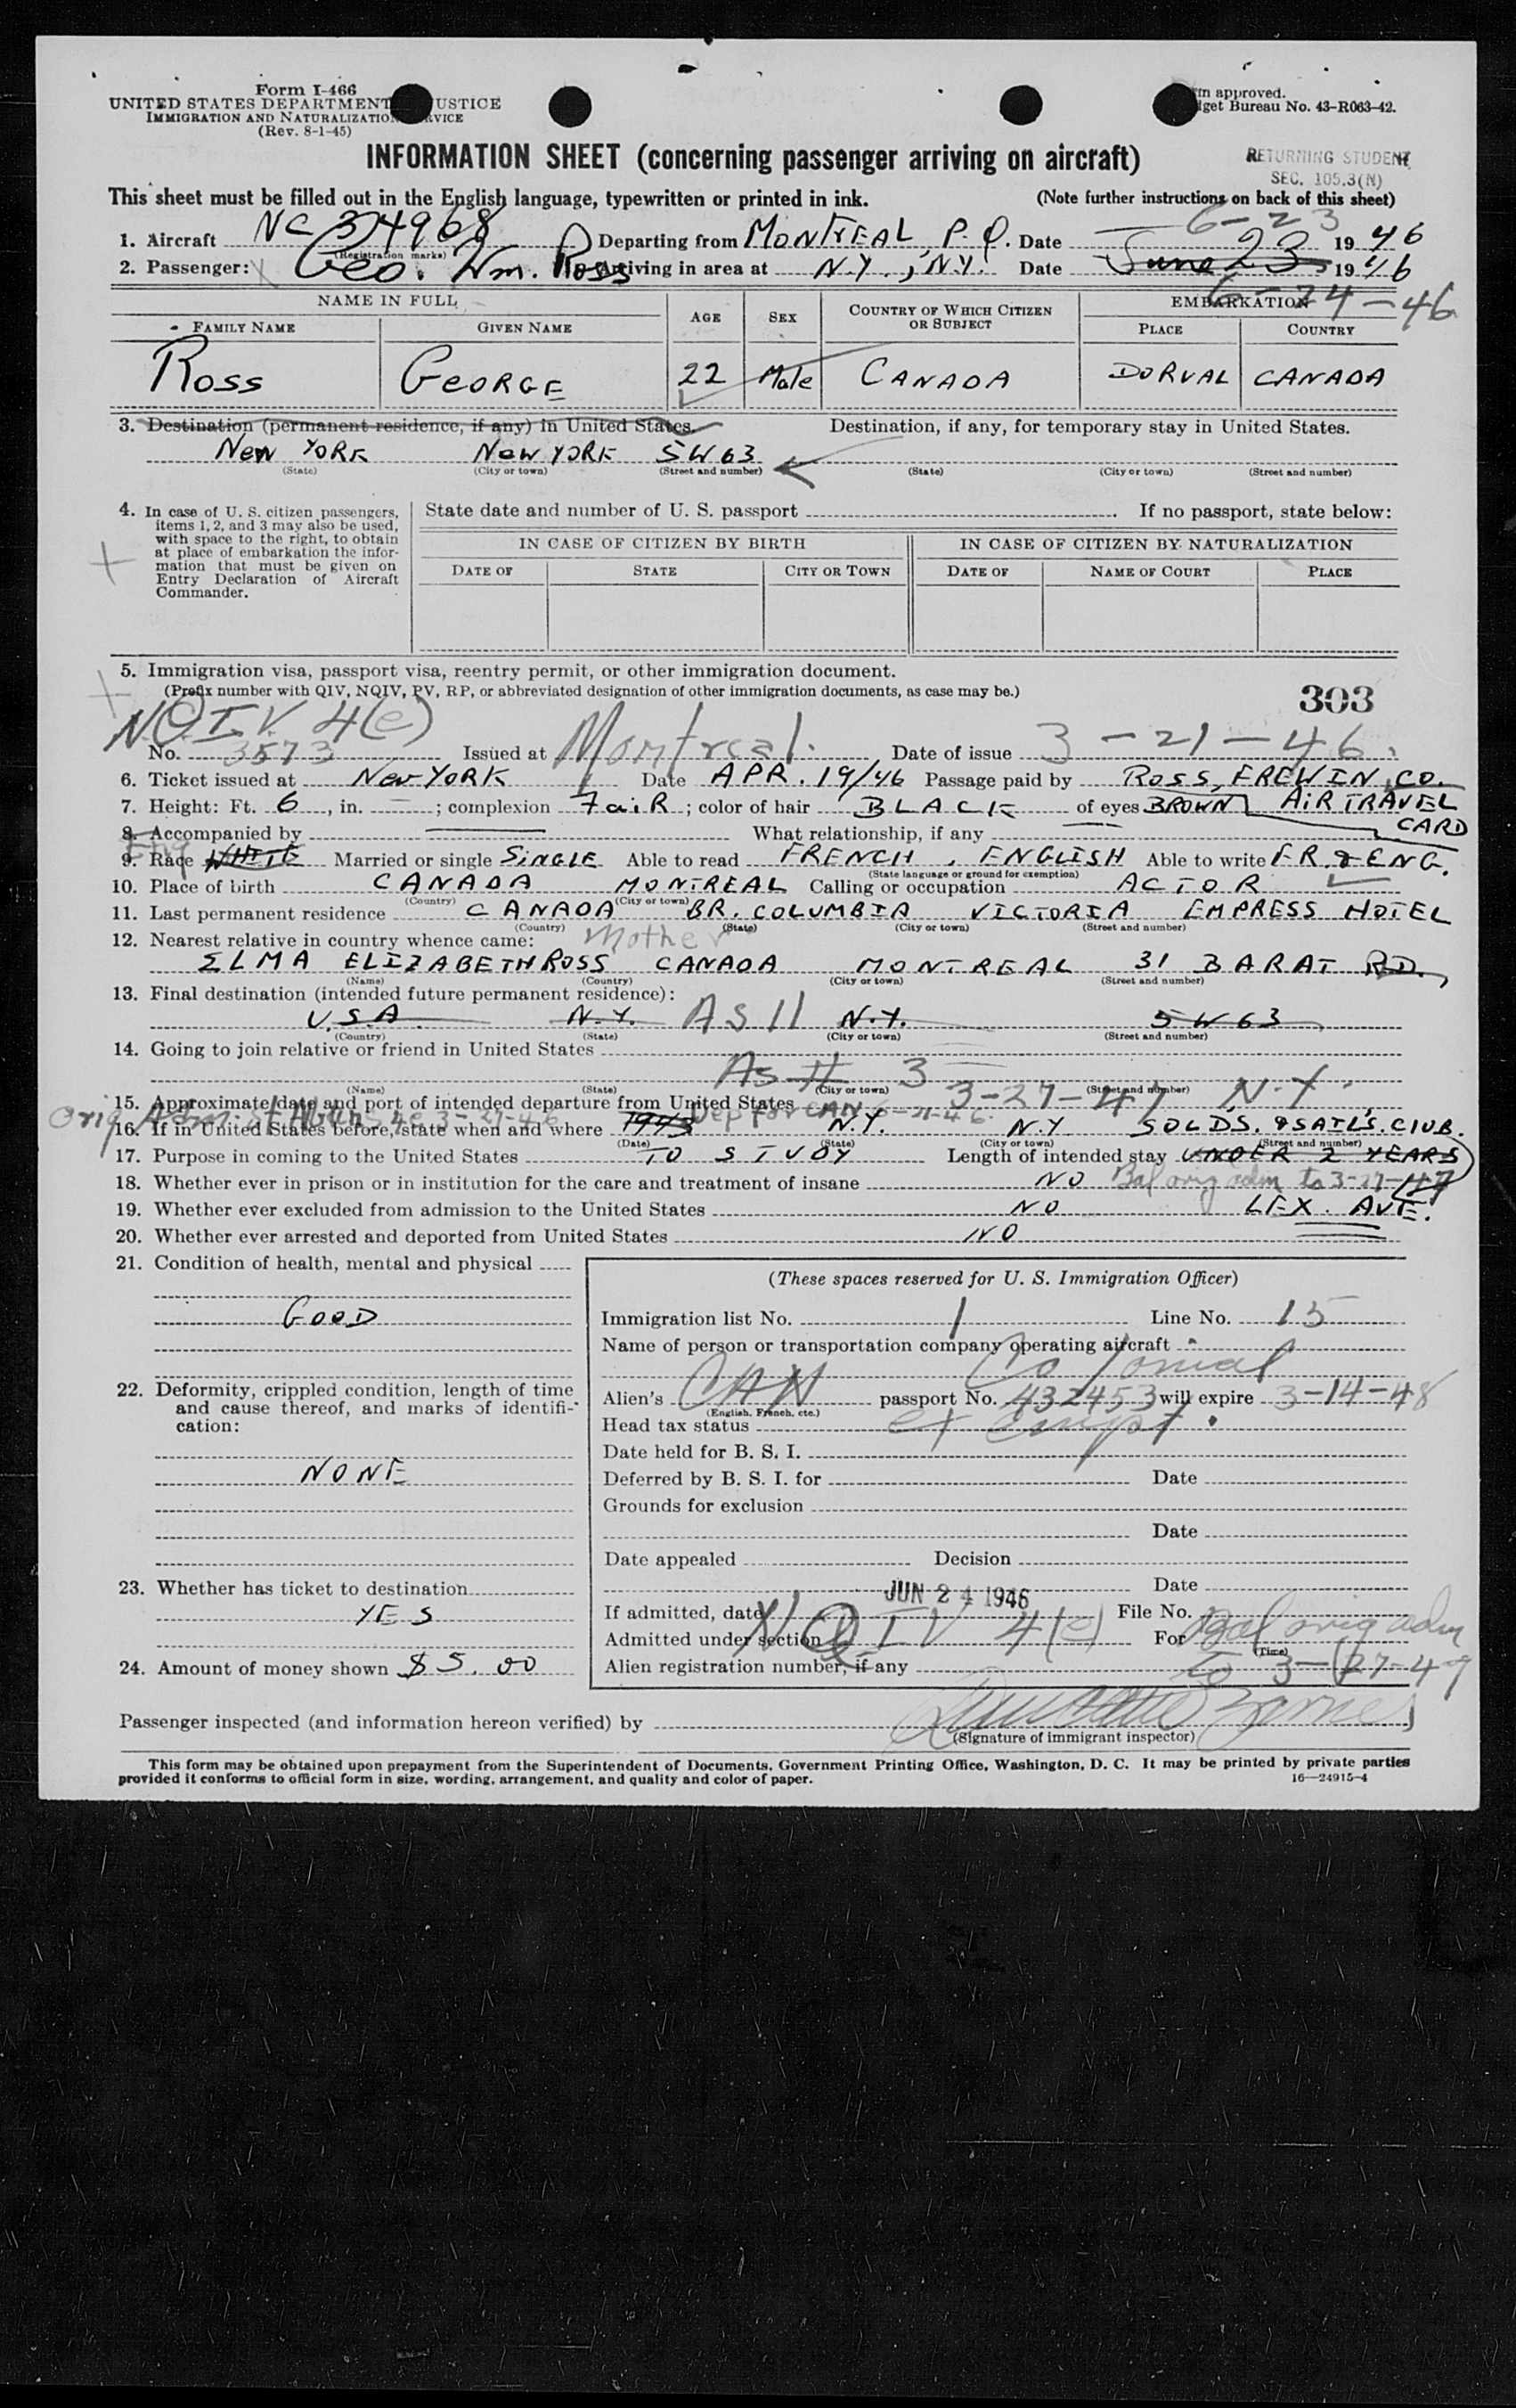 Form I-466
UNITED STATES DEPARTMENT JUSTICE
IMMIGRATION AND NATURALIZATION SERVICE
(Rev. 8-1-45)
approved.
Budget Bureau No. 43-R063-42.
INFORMATION SHEET (concerning passenger arriving on aircraft)
RETURNING STUDENT
SEC. 105.3(N)
This sheet must be filled out in the English language, typewritten or printed in ink. (Note further instructions on back of this sheet)
6-23
1. Aircraft NC 34968 Departing from MONTREAL, P.Q. Date 1946
(Registration marks)
2. Passenger: Geo. Wm. Ross Arriving in area at N.Y., N.Y. Date June 23 1946
6-24-46
NAME IN FULL AGE SEX COUNTRY OF WHICH CITIZEN OR SUBJECT EMBARKATION
FAMILY NAME GIVEN NAME PLACE COUNTRY
ROSS GEORGE 22 Male CANADA DORVAL CANADA
3. Destination (permanent residence, if any) in United States. Destination, if any, for temporary stay in United States.
NEW YORK NEW YORK 5 W 63
(State) (City or town) (Street and number) (State) (City or town) (Street and number)
4. In case of U. S. citizen passengers, items 1, 2, and 3 may also be used, with space to the right, to obtain at place of embarkation the information that must be given on Entry Declaration of Aircraft Commander.
State date and number of U. S. passport If no passport, state below:
IN CASE OF CITIZEN BY BIRTH IN CASE OF CITIZEN BY NATURALIZATION
DATE OF STATE CITY OR TOWN DATE OF NAME OF COURT PLACE
5. Immigration visa, passport visa, reentry permit, or other immigration document.
(Prefix number with QIV, NQIV, PV, RP, or abbreviated designation of other immigration documents, as case may be.)
303
NQIV 4(e)
No. 3573 Issued at Montreal. Date of issue 3-21-46.
6. Ticket issued at NEW YORK Date APR. 19/46 Passage paid by ROSS, FREWIN, CO.
7. Height: Ft. 6, in. —; complexion FaiR; color of hair BLACK of eyes BROWN AIR TRAVEL
CARD
8. Accompanied by — What relationship, if any —
9. Race WHITE Eng Married or single SiNGLE Able to read FRENCH, ENGLISH Able to write FR. & ENG.
(State language or ground for exemption)
10. Place of birth CANADA MONTREAL Calling or occupation ACTOR
(Country) (City or town)
11. Last permanent residence CANADA BR. COLUMBIA VICTORIA EMPRESS HOTEL
(Country) (State) (City or town) (Street and number)
12. Nearest relative in country whence came: Mother
ELMA ELIZABETH ROSS CANADA MONTREAL 31 BARAT RD.
(Name) (Country) (City or town) (Street and number)
13. Final destination (intended future permanent residence):
U.S.A. N.Y. As 11 N.Y. 5 W 63
(Country) (State) (City or town) (Street and number)
14. Going to join relative or friend in United States
As # 3
(Name) (State) (City or town) (Street and number)
15. Approximate date and port of intended departure from United States 3-27-47 N.Y.
Orig Adm. St Albans 4e 3-27-46 Dep for CAN 6-21-46
16. If in United States before, state when and where 1943 N.Y. N.Y SOLD'S. & SAIL'S. CLUB.
(Date) (State) (City or town) (Street and number)
17. Purpose in coming to the United States TO STUDY Length of intended stay UNDER 2 YEARS
18. Whether ever in prison or in institution for the care and treatment of insane NO Bal orig adm to 3-27-47
19. Whether ever excluded from admission to the United States NO LEX. AVE.
20. Whether ever arrested and deported from United States NO
21. Condition of health, mental and physical
GOOD
22. Deformity, crippled condition, length of time and cause thereof, and marks of identification:
NONE
23. Whether has ticket to destination
YES
24. Amount of money shown $5.00
(These spaces reserved for U. S. Immigration Officer)
Immigration list No. 1 Line No. 15
Name of person or transportation company operating aircraft
Colonial
Alien's CAN passport No. 432453 will expire 3-14-48
(English, French, etc.)
Head tax status exempt.
Date held for B. S. I.
Deferred by B. S. I. for Date
Grounds for exclusion
Date
Date appealed Decision
Date
If admitted, date JUN 24 1946 File No.
Admitted under section NQIV 4(e) For Bal orig adm
(Time)
Alien registration number, if any to 3-27-47
Passenger inspected (and information hereon verified) by
(Signature of immigrant inspector)
This form may be obtained upon prepayment from the Superintendent of Documents, Government Printing Office, Washington, D. C. It may be printed by private parties
provided it conforms to official form in size, wording, arrangement, and quality and color of paper. 16—24915-4